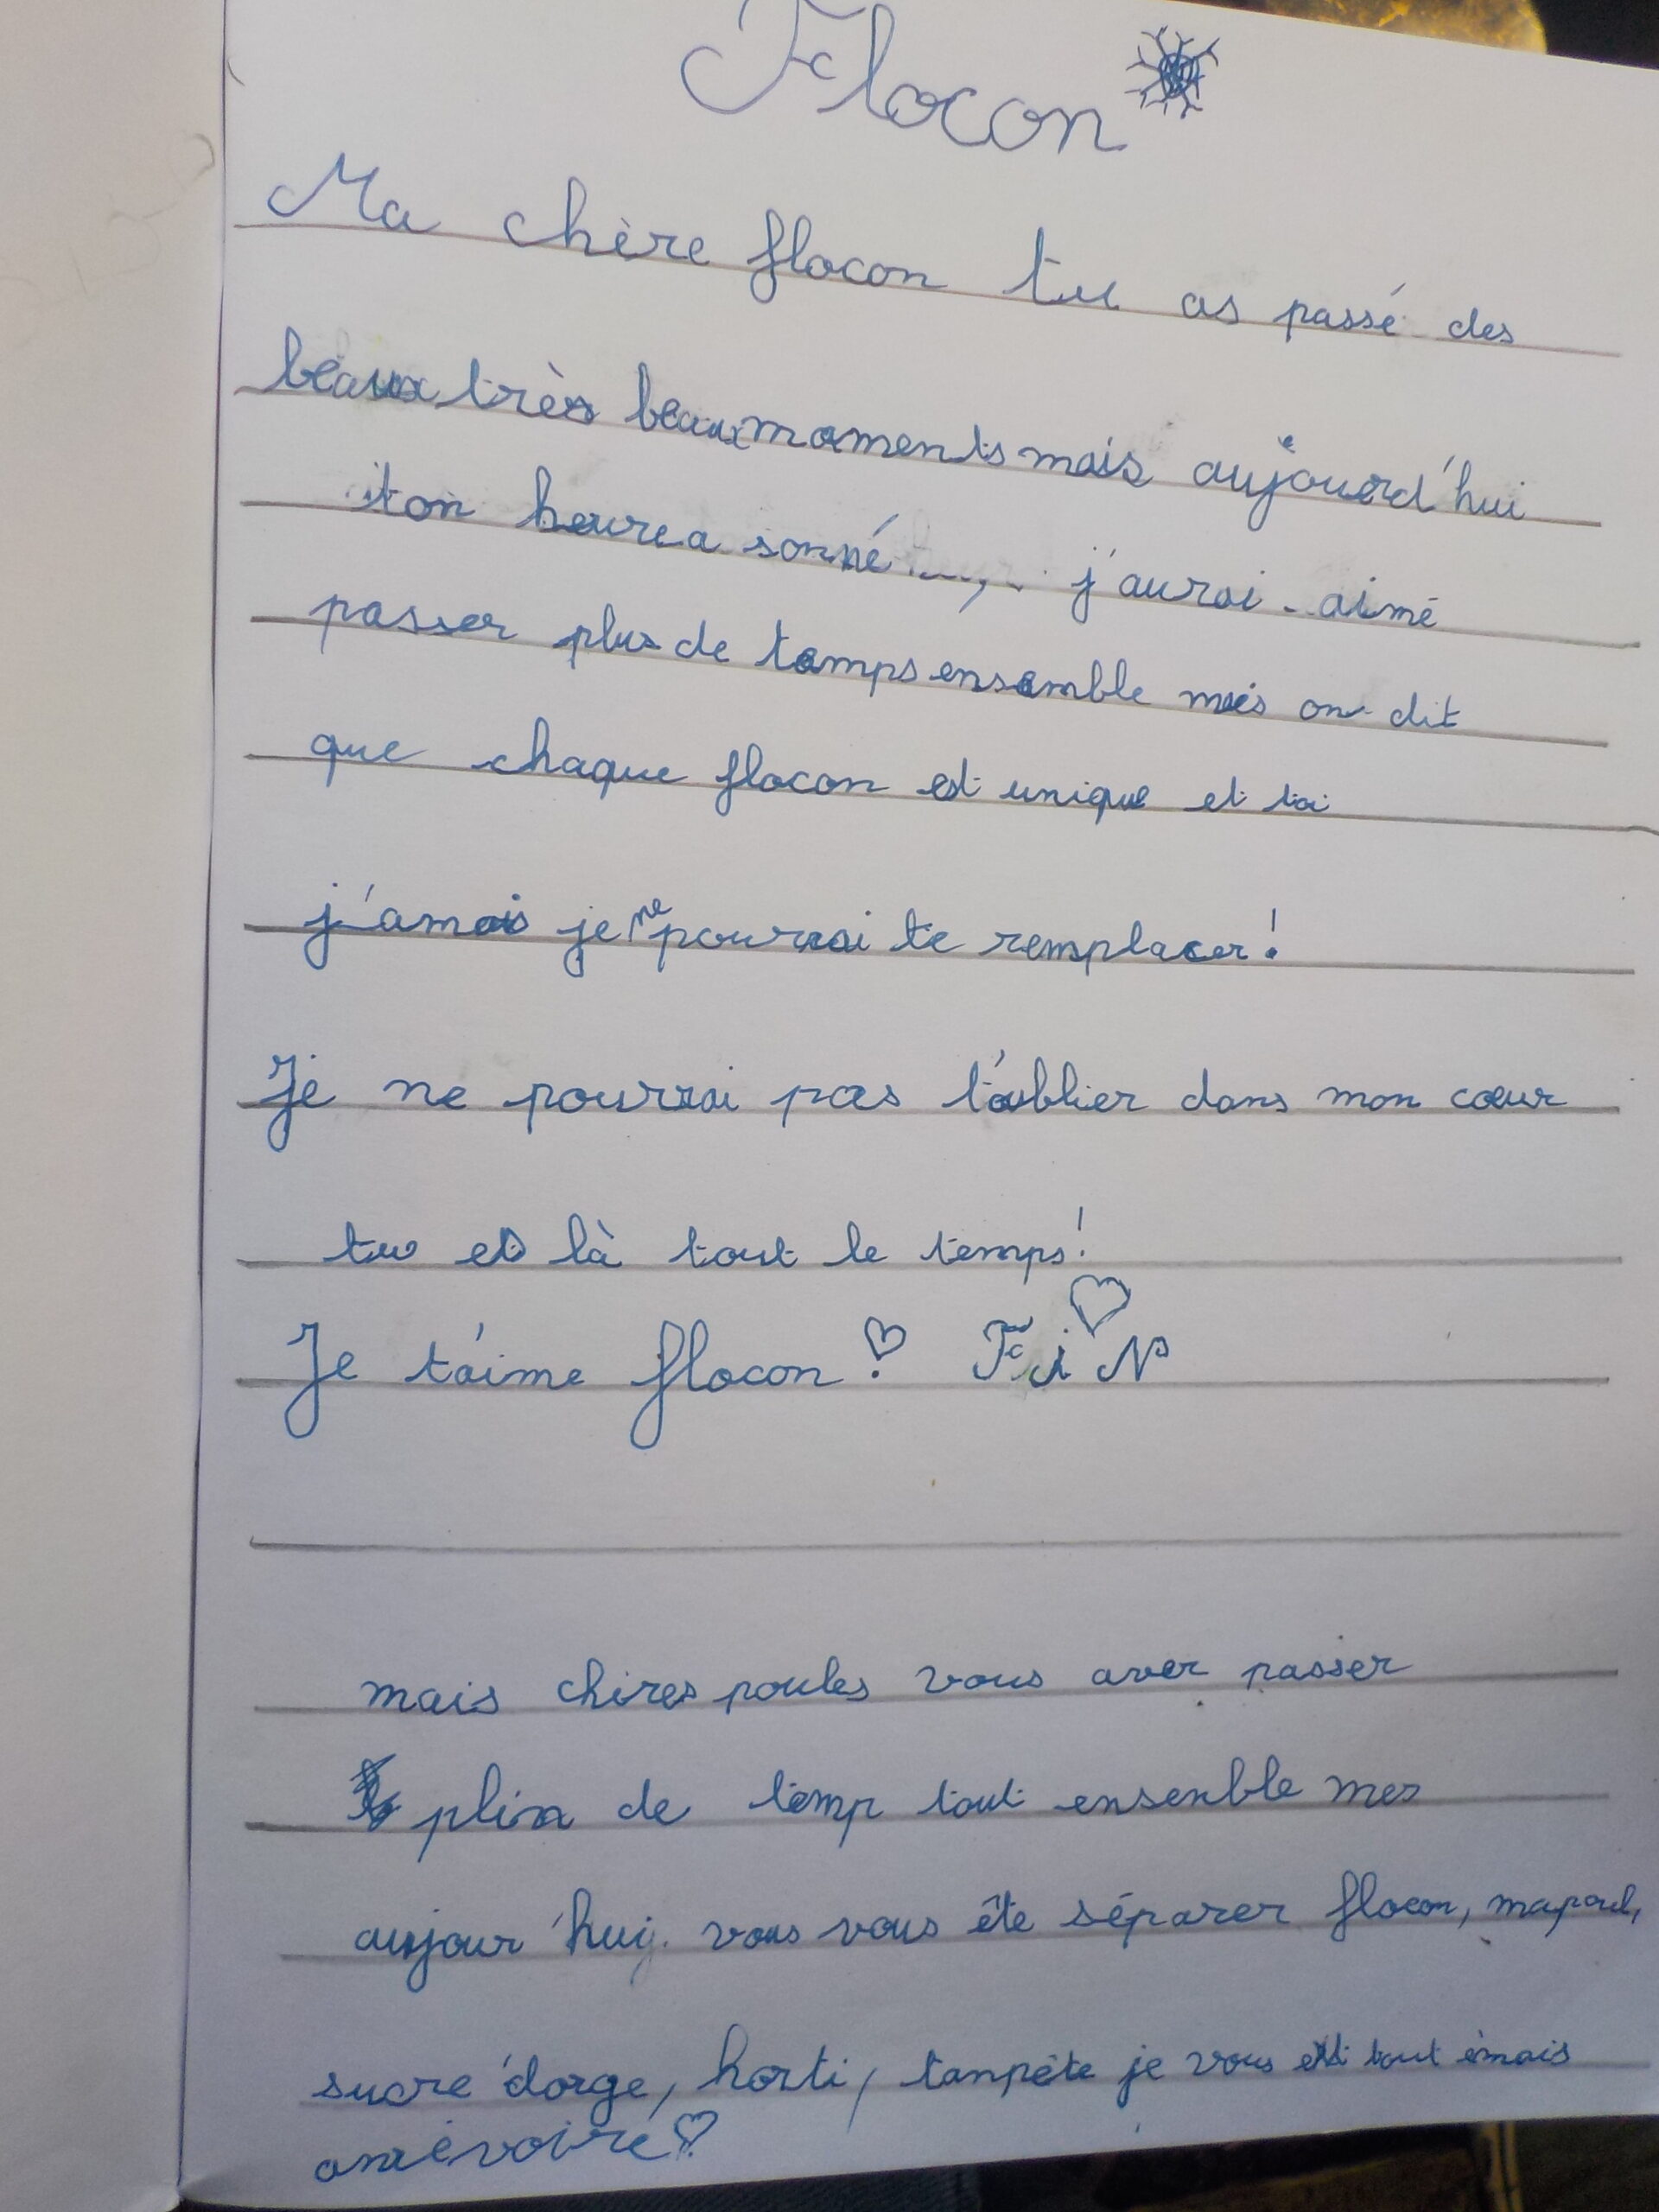 Flocon
Ma chère flocon tu as passé des
beaux très beaux moments mais aujourd'hui
ton heure a sonné j'aurai aimé
passer plus de temps ensemble mais on dit
que chaque flocon est unique et toi
j'amais je ne pourrai te remplacer!
Je ne pourrai pas t'oublier dans mon cœur
tu es là tout le temps!
Je t'aime flocon! FiN
mais chires poules vous aver passer
plin de temp tout ensenble mes
aujour'hui vous vous ête séparer flocon, mapoul,
sucre d'orge, horti, tanpète je vous tout émais